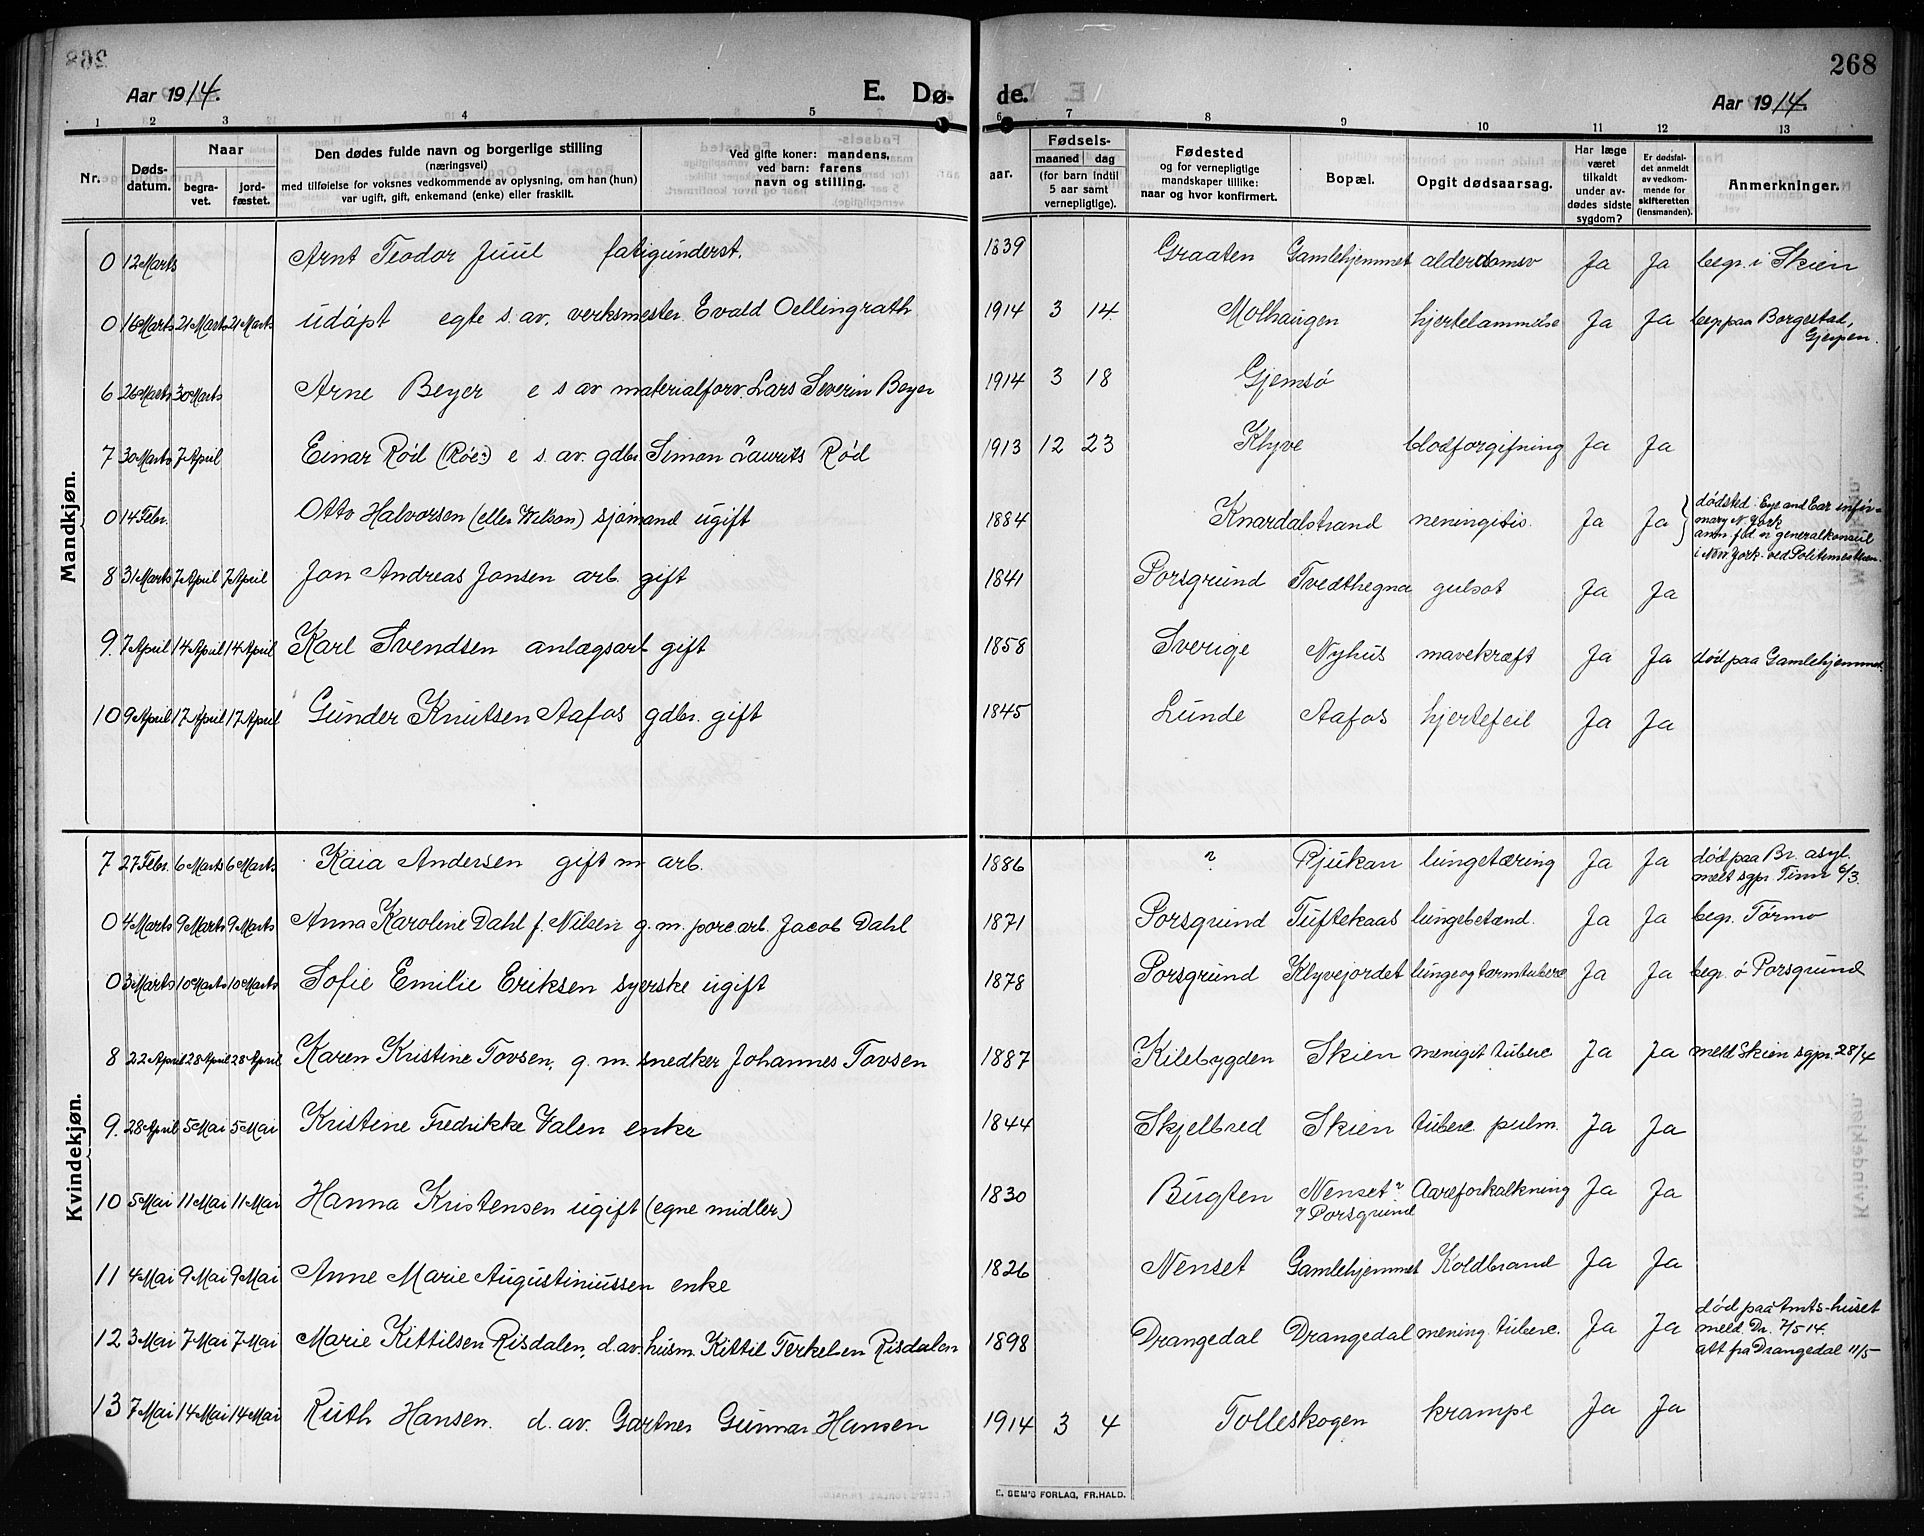 268
Aar 1914.
E. Døde.
Aar 1914.
1 2 3 4 5 6 7 8 9 10 11 12 13
Nr.
Døds-
datum.
Naar
begra-
vet.
jord-
fæstet.
Den dødes fulde navn og borgerlige stilling
(næringsvei)
med tilføielse for voksnes vedkommende av oplysning, om han (hun)
var ugift, gift, enkemand (enke) eller fraskilt.
Ved gifte koner: mandens,
ved barn: farens
navn og stilling.
aar.
Fødsels-
maaned dag
(for barn indtil
5 aar samt
vernepligtige).
Fødested
og for vernepligtige
mandskaper tillike:
naar og hvor konfirmert.
Bopæl.
Opgit dødsaarsag.
Har læge
været
tilkaldt
under av-
dødes sidste
sygdom?
Er dødsfal-
det anmeldt
av vedkom-
mende for
skifteretten
(lensmanden).
Anmerkninger.
Mandkjøn.
0 12 Marts Arnt Teodor Juul fatigunderst. 1839 Graaten Gamlehjemmet alderdomssv Ja Ja begr. i Skien
0 16 Marts 21 Marts 21 Marts udøpt egte s. av. verksmester Evald Oellingrath 1914 3 14 Molhaugen hjertelammelse Ja Ja begr paa Borgestad,
Gjerpen.
6 26 Marts 30 Marts Arne Beyer e s av materialforv. Lars Severin Beyer 1914 3 18 Gjemsø
7 30 Marts 7 April Einar Rød (Røe?) e s. av. gdbr Simon Laurits Rød 1913 12 23 Klyve blodforgifning Ja Ja
0 14 Febr. Otto Halvorsen (eller Wilson) sjømand ugift 1884 Knardalstrand neningitis Ja Ja } dødsted: Eye and Ear infir-
mary N. York
anm. fød. n generalkonsul
i New York. ved Politimesteren.
8 31 Marts 7 April 7 April Jon Andreas Jonsen arb. gift 1841 Porsgrund Tvedthegna gulsot Ja Ja
9. 7 April 14 April 14 April Karl Svendsen anlægsarb gift 1858 Sverige Nyhus mavekræft Ja Ja død paa Gamlehjemmet
10 9 April 17 April 17 April Gunder Knutsen Aafos gdbr. gift 1845 Lunde Aafos hjertefeil Ja Ja
Kvindekjøn.
7 27 Febr. 6 Marts 6 Marts Kaia Andersen gift m arb. 1886 ? Rjukan lungetæring Ja Ja død paa Br. asyl.
melt sgpr. Tinn 6/3.
0 4 Marts 9 Marts 9 Marts Anna Karoline Dahl f. Nilsen g. m. porc. arb. Jacob Dahl 1871 Porsgrund Tuftekaas lungebetænd. Ja Ja begr. Tørmo
0 3 Marts 10 Marts 10 Marts Sofie Emilie Eriksen syerske ugift 1878 Porsgrund Klyvejordet lunge og tarmtuberc Ja Ja begr. ø Porsgrund
8 22 April 28 April 28 April Karen Kristine Tovsen, g. m. snedker Johannes Tovsen 1887 Kilebygden Skien menigit tuberc Ja Ja meld Skien sgpr. 28/4
9. 28 April 5 Mai 5 Mai Kristine Fredrikke Valen enke 1844 Skjelbred Skien tuberc pulm. Ja Ja
10 5 Mai 11 Mai 11 Mai Hanna Kristensen ugift (egne midler.) 1830 Bugten Nenset ?
? Porsgrund Aareforkalkning Ja Ja
11 4 Mai 9 Mai 9 Mai Anne Marie Augustiniussen enke 1826 Nenset Gamlehjemmet Koldbrand Ja Ja
12 3 Mai 7 Mai 7 Mai Marie Kittilsen Risdalen, d. av. husm. Kittil Terkelsen Risdalen 1898 Drangedal Drangedal mening. tuberc. Ja Ja død paa Amts-huset
meld. Dr. 7/5 14.
att fra Drangedal 11/5
13 7 Mai 14 Mai 14 Mai Ruth Hansen. d. av. Gartner Gunnar Hansen 1914 3 4 Tolleskogen krampe Ja Ja
E. SEM'S FORLAG, FR.HALD.